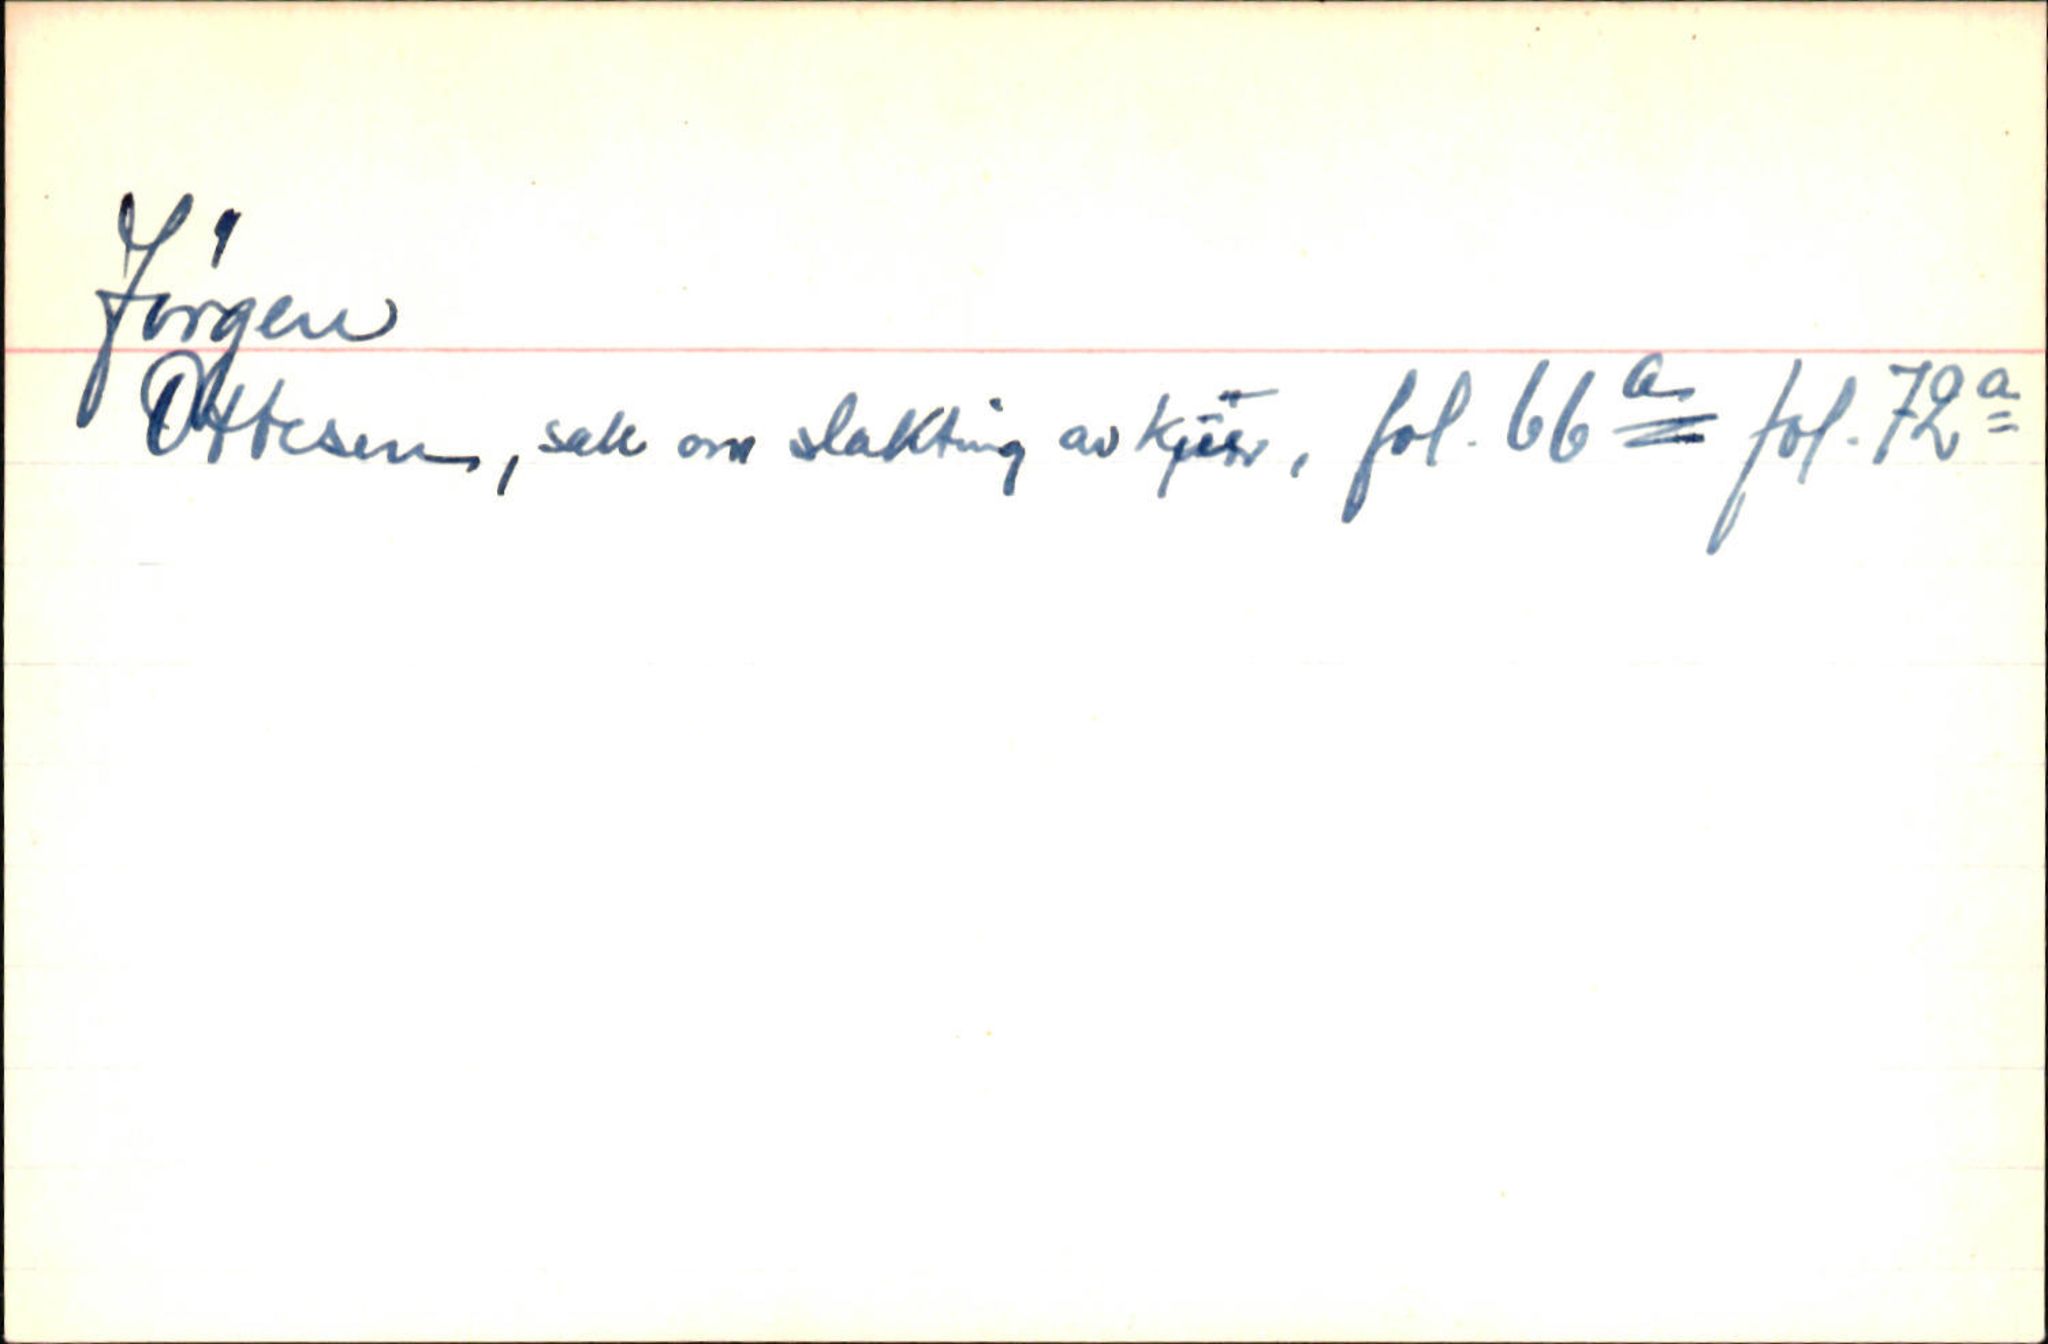 Jörgen
Ottesen, sak om slakting av kjør, fol. 66a fol. 72a